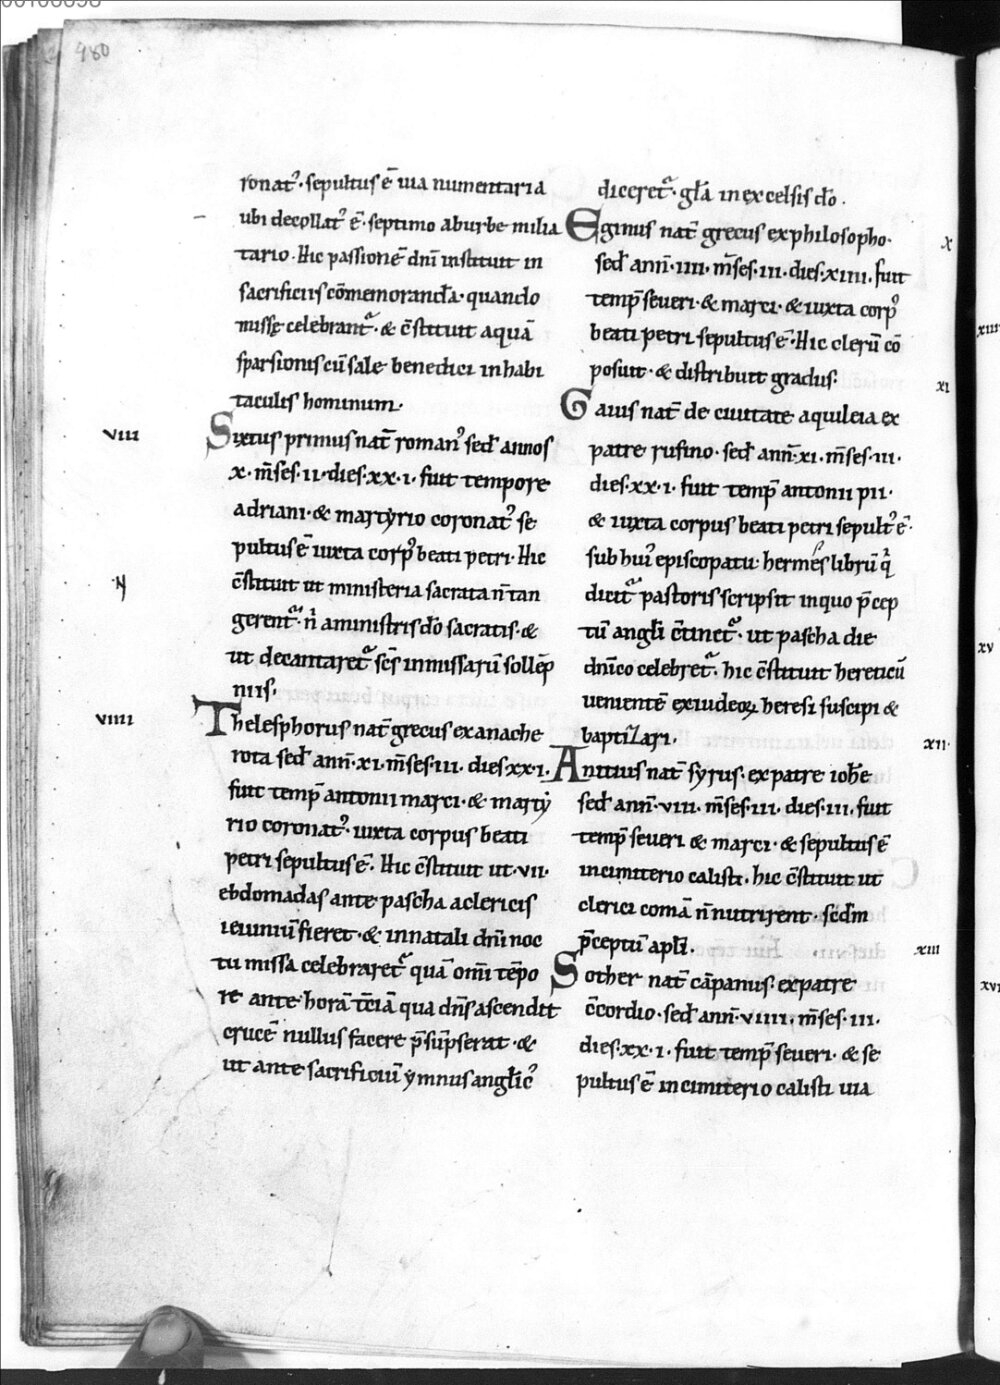 480
ronatꝰ· sepultus ē uia numentaria
ubi decollatꝰ ē· septimo ab urbe milia
tario· Hic passionē dn̄i instituit in
sacrificiis cōmemorandā· quando
missę celebrant᷑· & c̄stituit aquā
sparsionis cū sale benedici in habi
taculis hominum·
VIII
Sixtus primus nat̄ romanꝰ sed̄ annos
x· m̄ses· ii· dies· xx· i· fuit tempore
adriani· & martyrio coronatꝰ se
pultus ē iuxta corpꝰ beati petri· Hic
c̄stituit ut ministeria sacrata n̄ tan
gerent᷑· n̄ a ministris dō sacratis· &
ut decantaret᷑ sc̄s in missarū sollēp
niis·
VIIII
Thelesphorus nat̄ grecus ex anache
rota sed̄ ann̄· xi· m̄ses· iii· dies· xx· i·
fuit temp̄ antonii marci· & marty
rio coronatꝰ· iuxta corpus beati
petri sepultus ē· Hic c̄stituit ut· vii·
ebdomadas ante pascha a clericis
ieiuniū fieret· & in natali dn̄i noc
tu missa celebraret᷑ quā om̄i tēpo
re ante horā t̄ciā qua dn̄s ascendit
crucē nullus facere p̄sūpserat· &
ut ante sacrificiū ymnus anglicꝰ
diceret᷑· gl̄a in excelsis dō·
X
Eginus nat̄ grecus ex philosopho·
sed̄ ann̄· iiii· m̄ses· iii· dies· xiiii· fuit
temp̄ seueri· & marci· & iuxta corpꝰ
beati petri sepultus ē· Hic clerū cō
posuit· & distribuit gradus·
XI
Gaius nat̄ de ciuitate aquileia ex
patre rufino· sed̄ ann̄· xi· m̄ses· iii·
dies· xx· i· fuit temp̄ antonii pii·
& iuxta corpus beati petri sepultꝰ ē·
sub huiꝰ episcopatu· hermes librū q̄
dicit᷑ pastoris scripsit in quo p̄cep
tū angl̄i c̄tinet᷑· ut pascha die
dn̄ico celebret᷑· hic c̄stituit hereticū
uenientē ex iudeoꝝ heresi suscipi &
baptizari·
XII
Anitius nat̄ syrus· ex patre ioh̄e
sed̄ ann̄· viii· m̄ses· iii· dies· iii· fuit
temp̄ seueri & marci· & sepultus ē
in cimiterio calisti· hic c̄stituit ut
clerici comā n̄ nutrirent· scd̄m
p̄ceptū apl̄i·
XIII
Sother nat̄ cāpanus· ex patre
c̄cordio· sed̄ ann̄· viiii· m̄ses· iii·
dies· xx· i· fuit temp̄ seueri· & se
pultus ē in cimiterio calisti uia
XV